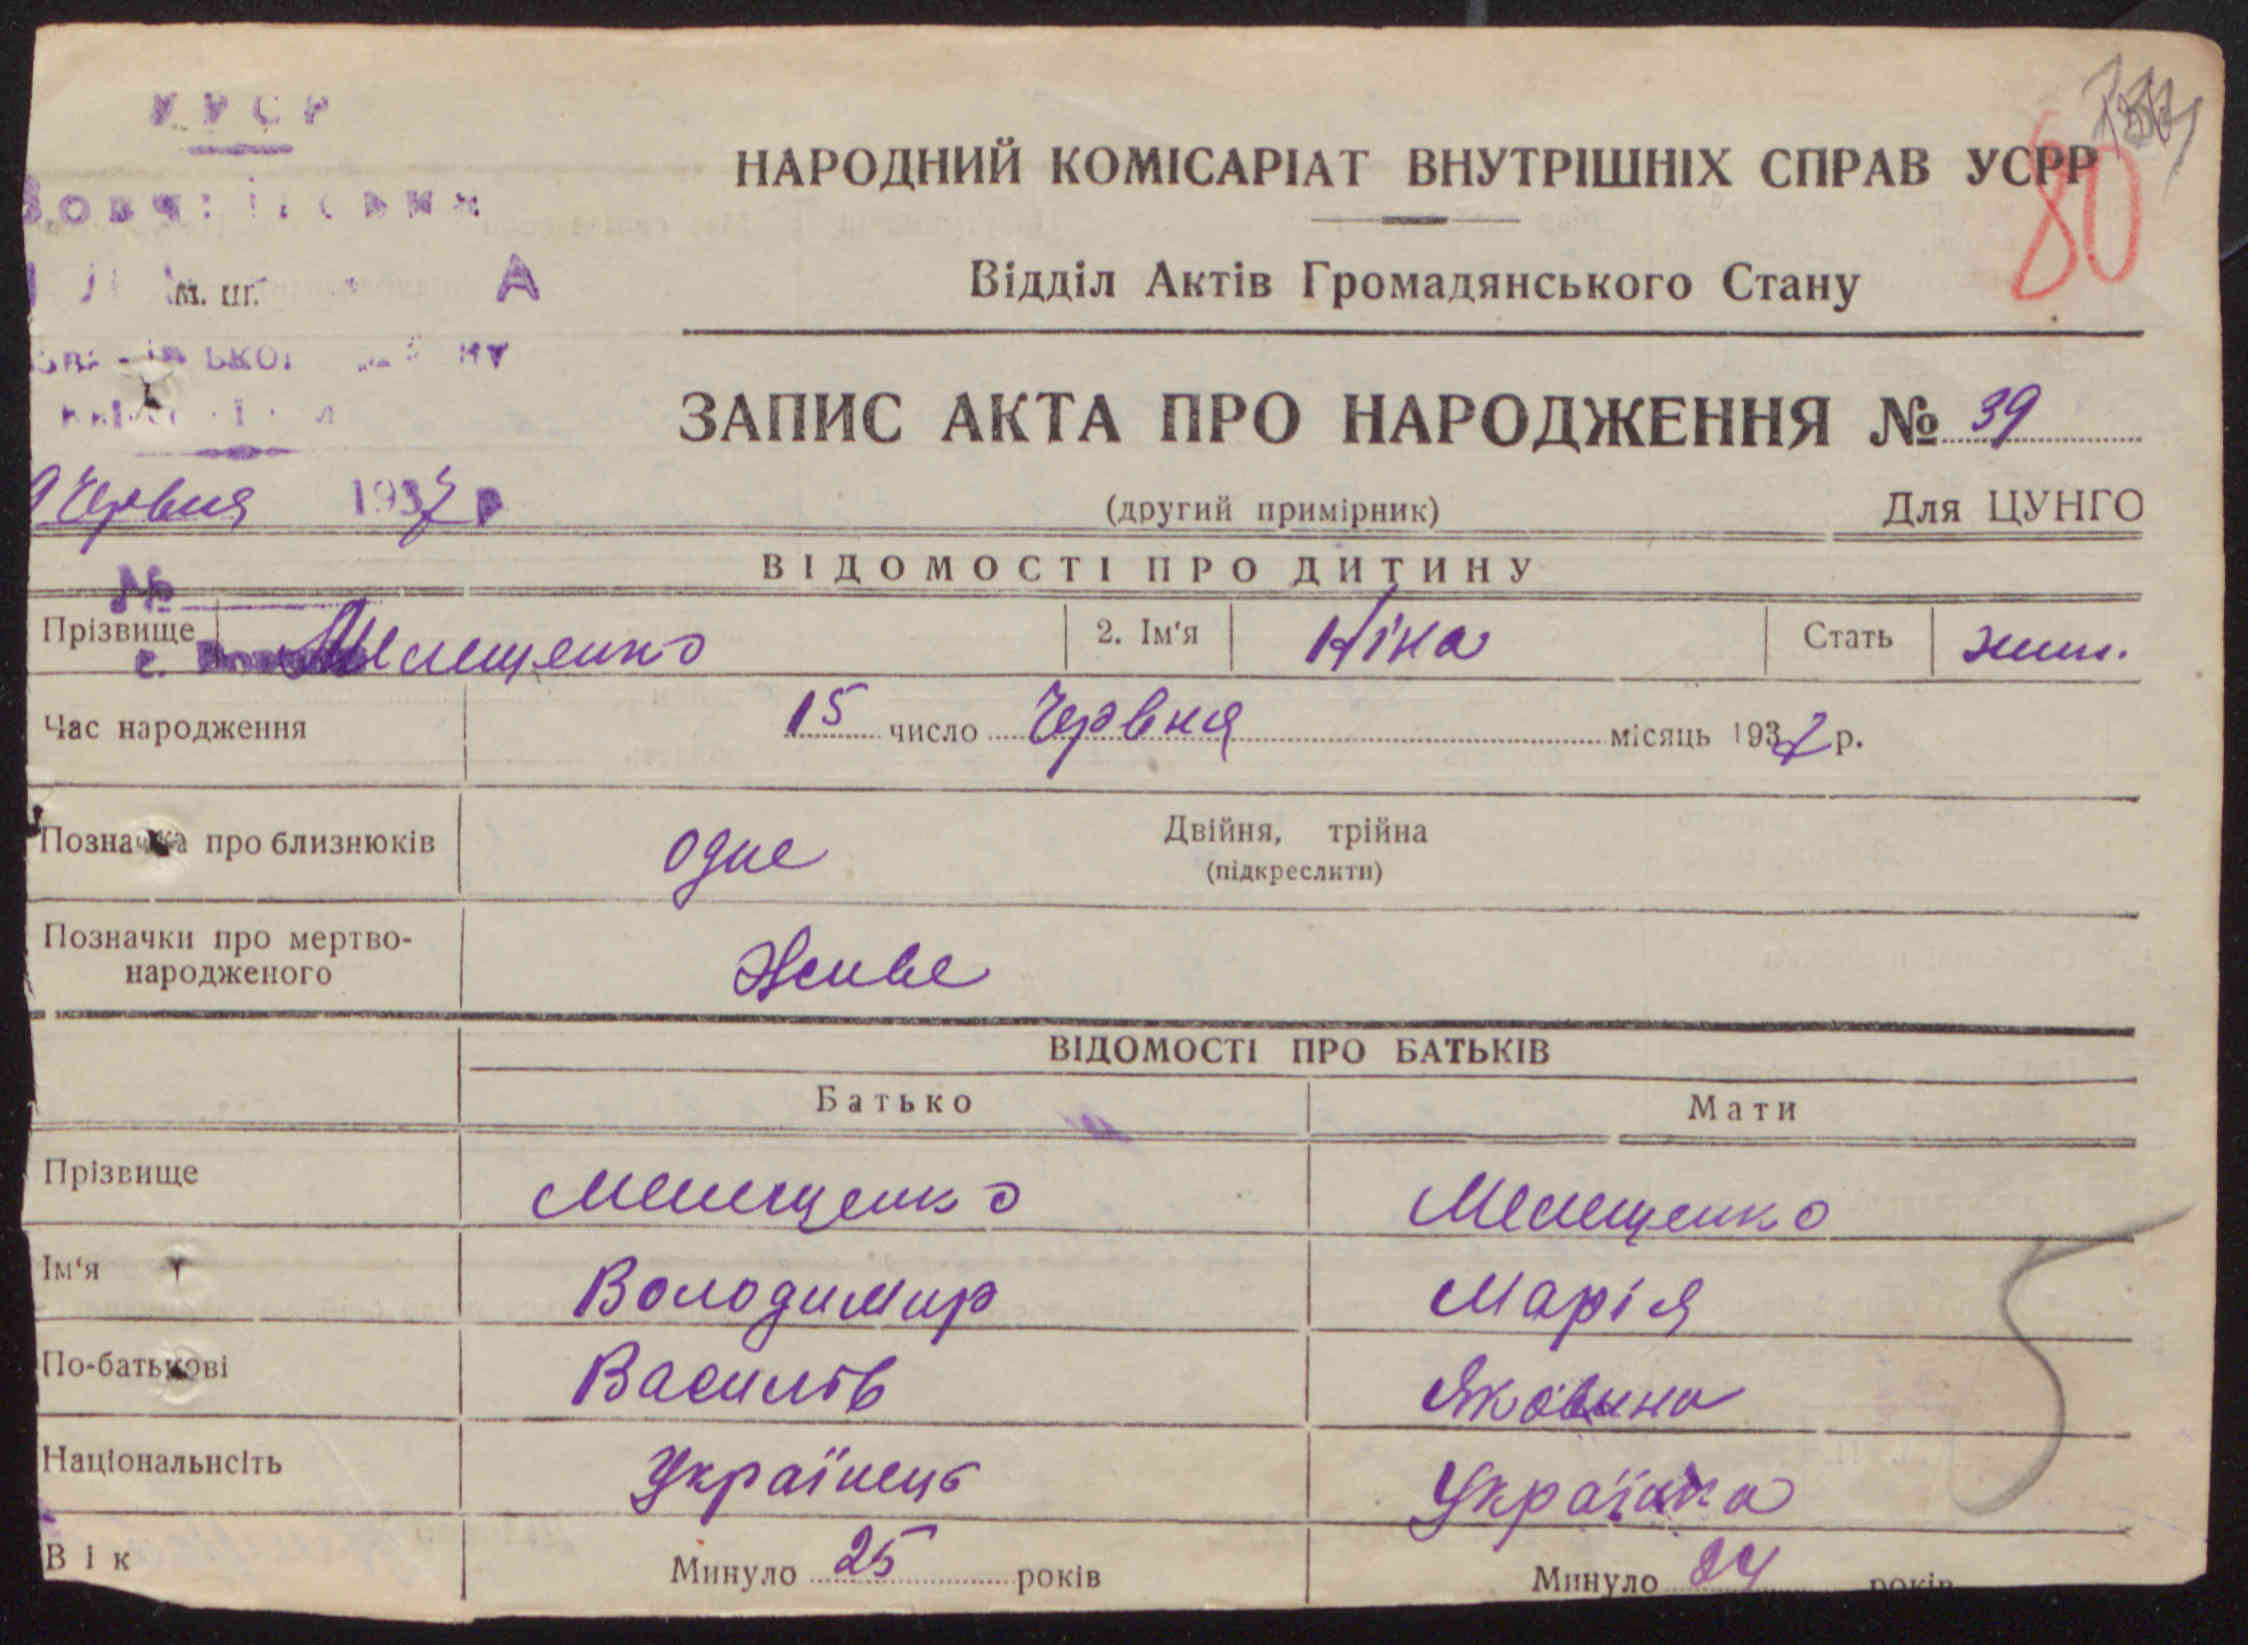 УРСР
А
м. шт.
НАРОДНИЙ КОМІСАРІАТ ВНУТРІШНІХ СПРАВ УСРР
80
Відділ Актів Громадянського Стану
ЗАПИС АКТА ПРО НАРОДЖЕННЯ № 39
Червня 1937 р
(другий примірник) Для ЦУНГО
ВІДОМОСТІ ПРО ДИТИНУ
№
Прізвище Мелещенко 2. Ім'я Ніна Стать жин.
с.
Час народження 15 число Червня місяць 1937 р.
Позначка про близнюків одне Двійня, трійна
(підкреслити)
Позначки про мертво-
народженого Живе
ВІДОМОСТІ ПРО БАТЬКІВ
Батько Мати
Прізвище Мелещенко Мелещенко
Ім'я Володимир Марія
По-батькові Василів Яковина
Національнсіть Українець Українка
Вік Минуло 25 років Минуло 24 років
5